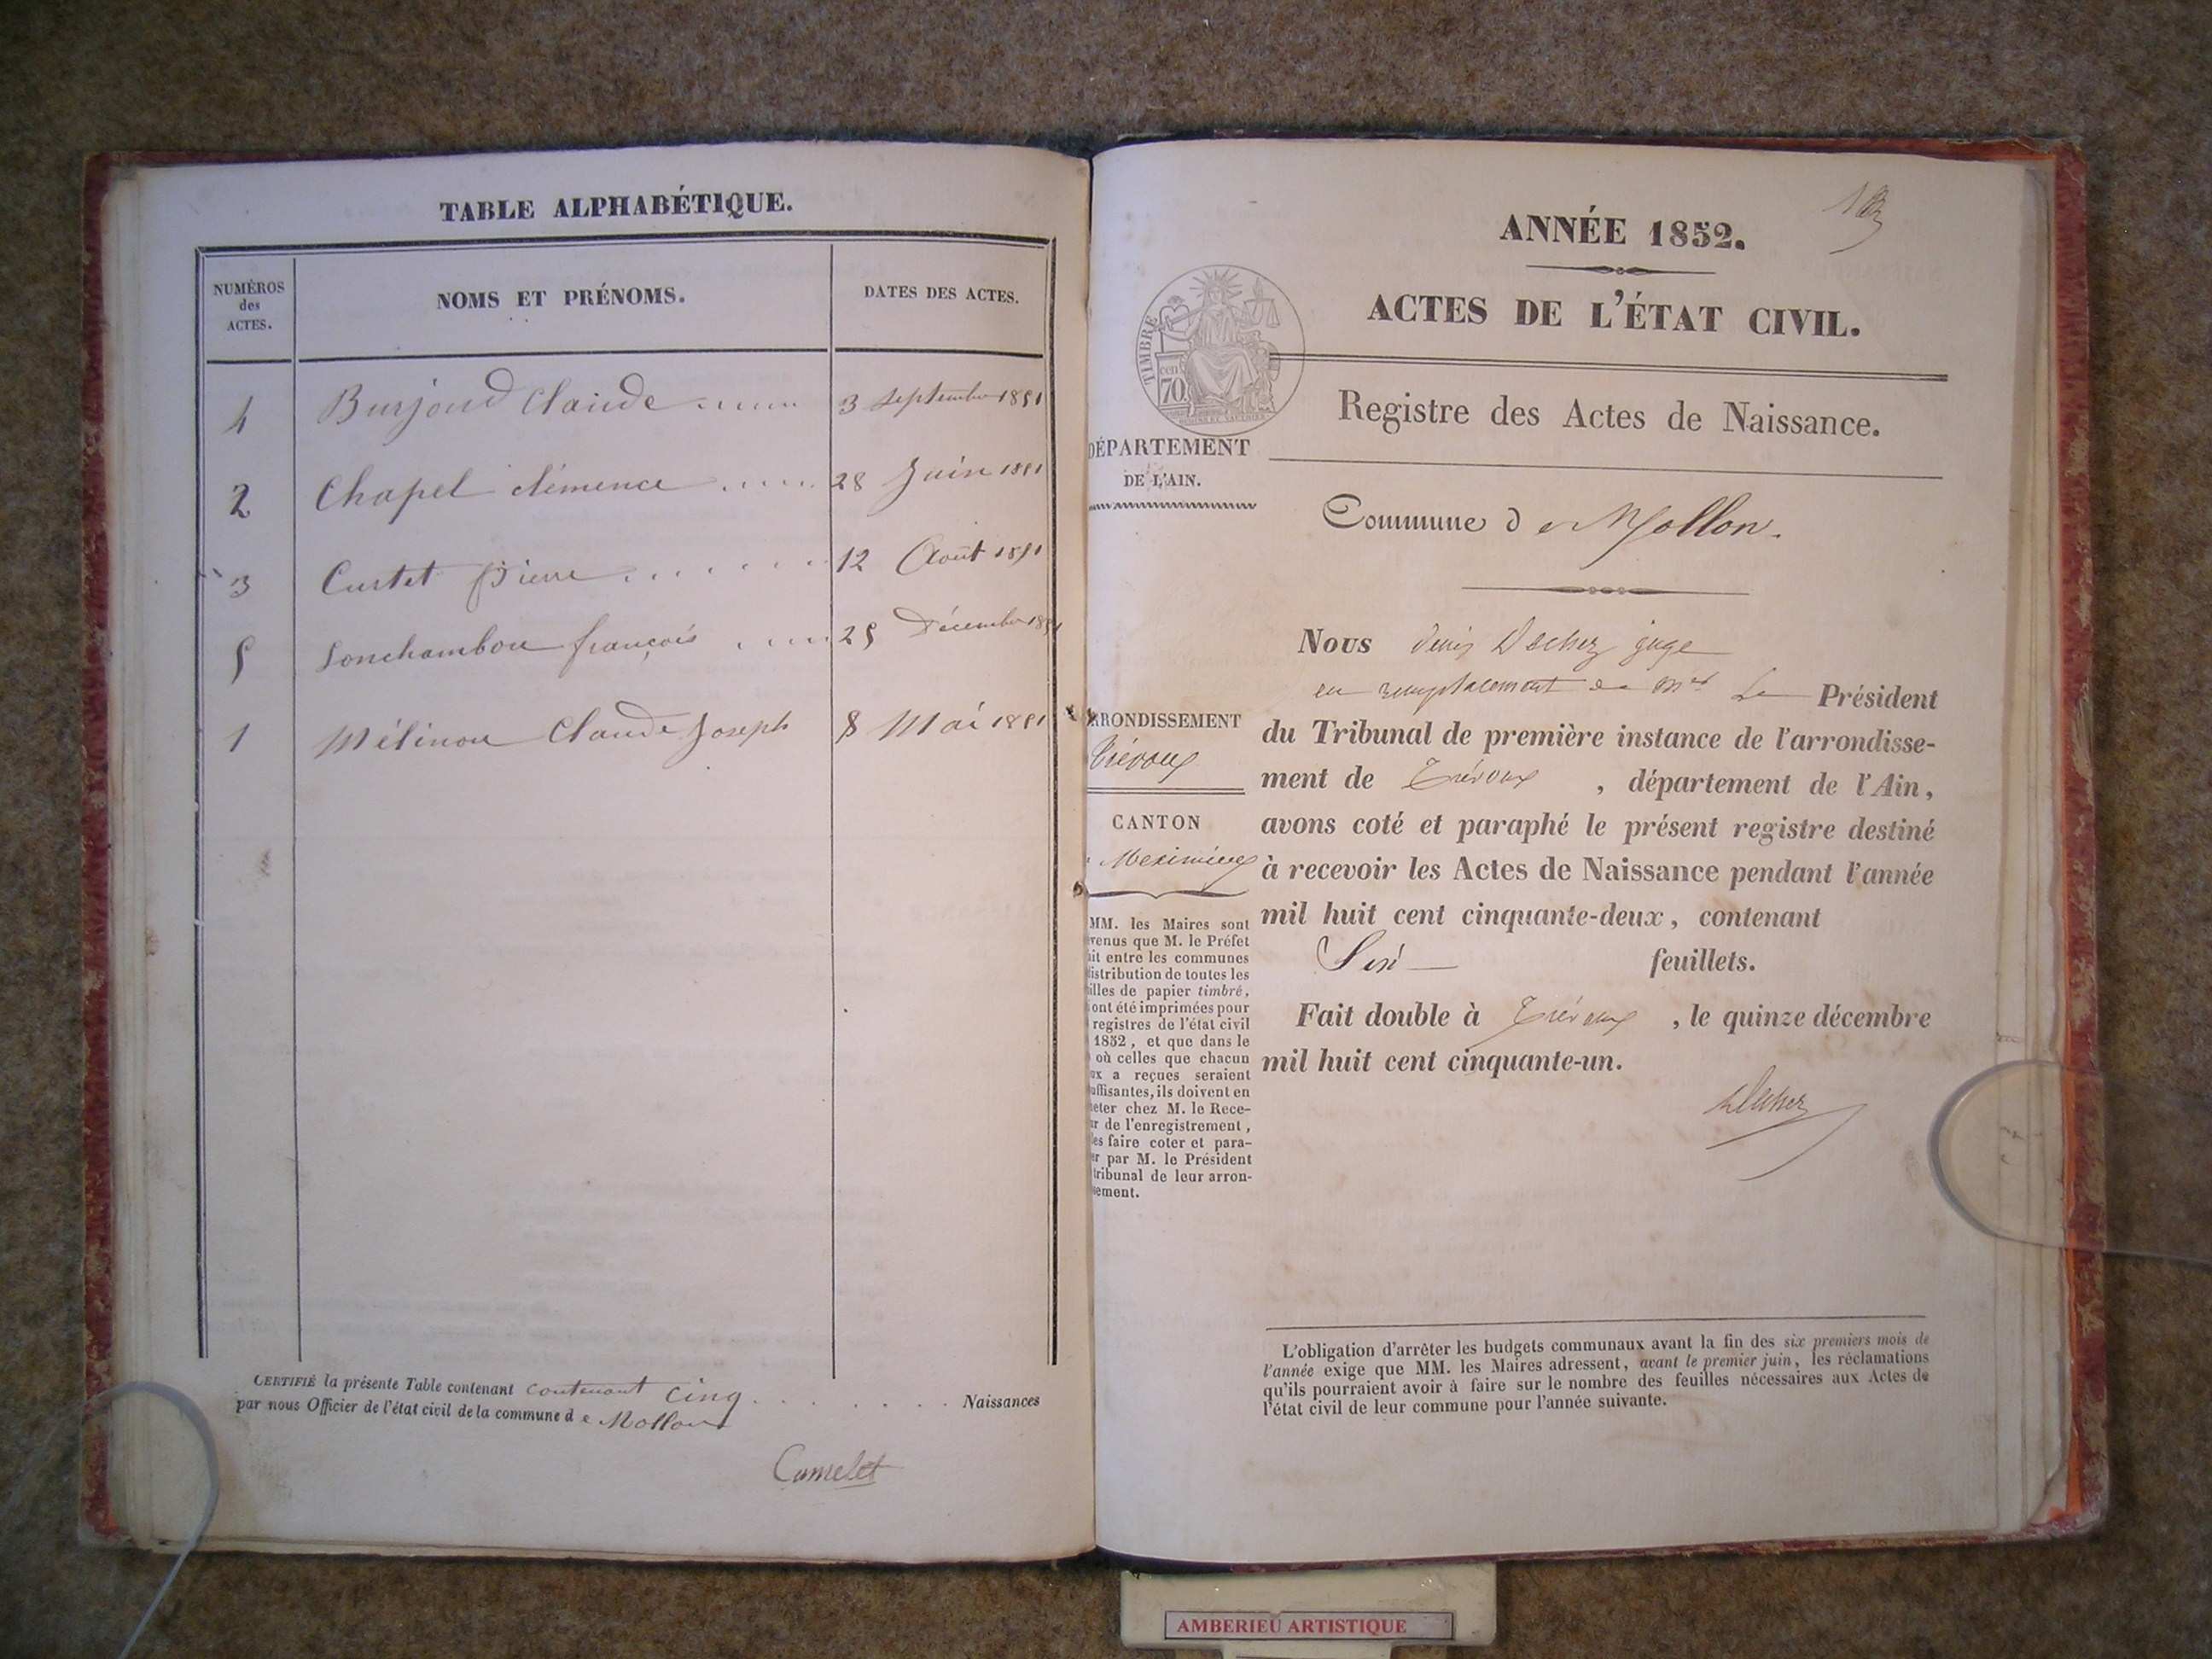 TABLE ALPHABÉTIQUE.
NUMÉROS des ACTES. NOMS ET PRÉNOMS. DATES DES ACTES.
4 Burjoud Claude ...... 3 Septembre 1851
2 Chapel clémence ..... 28 Juin 1851
3 Curtet Pierre ....... 12 Août 1851
5 Lonchambon françois ..... 25 Décembre 1851
1 Mélinon Claude Joseph 8 Mai 1851
CERTIFIÉ la présente Table contenant contenant cinq . . . . . . Naissances
par nous Officier de l'état civil de la commune d e Mollon
Camelet
ANNÉE 1852.
ACTES DE L'ÉTAT CIVIL.
TIMBRE
cen
70.
Registre des Actes de Naissance.
DÉPARTEMENT
DE L'AIN.
Commune d e Mollon.
Nous denis Dechez juge
en remplacement de Mr Le Président
du Tribunal de première instance de l'arrondisse-
ment de Trévoux , département de l'Ain,
avons coté et paraphé le présent registre destiné
à recevoir les Actes de Naissance pendant l'année
mil huit cent cinquante-deux, contenant
Six feuillets.
Fait double à Trévoux , le quinze décembre
mil huit cent cinquante-un.
Dechez
RRONDISSEMENT
Trévoux
CANTON
Meximieux
MM. les Maires sont
venus que M. le Préfet
ait entre les communes
distribution de toutes les
illes de papier timbré,
ont été imprimées pour
registres de l'état civil
1852, et que dans le
où celles que chacun
ux a reçues seraient
uffisantes, ils doivent en
heter chez M. le Rece-
ur de l'enregistrement,
les faire coter et para-
er par M. le Président
tribunal de leur arron-
sement.
L'obligation d'arrêter les budgets communaux avant la fin des six premiers mois de
l'année exige que MM. les Maires adressent, avant le premier juin, les réclamations
qu'ils pourraient avoir à faire sur le nombre des feuilles nécessaires aux Actes de
l'état civil de leur commune pour l'année suivante.
AMBERIEU ARTISTIQUE